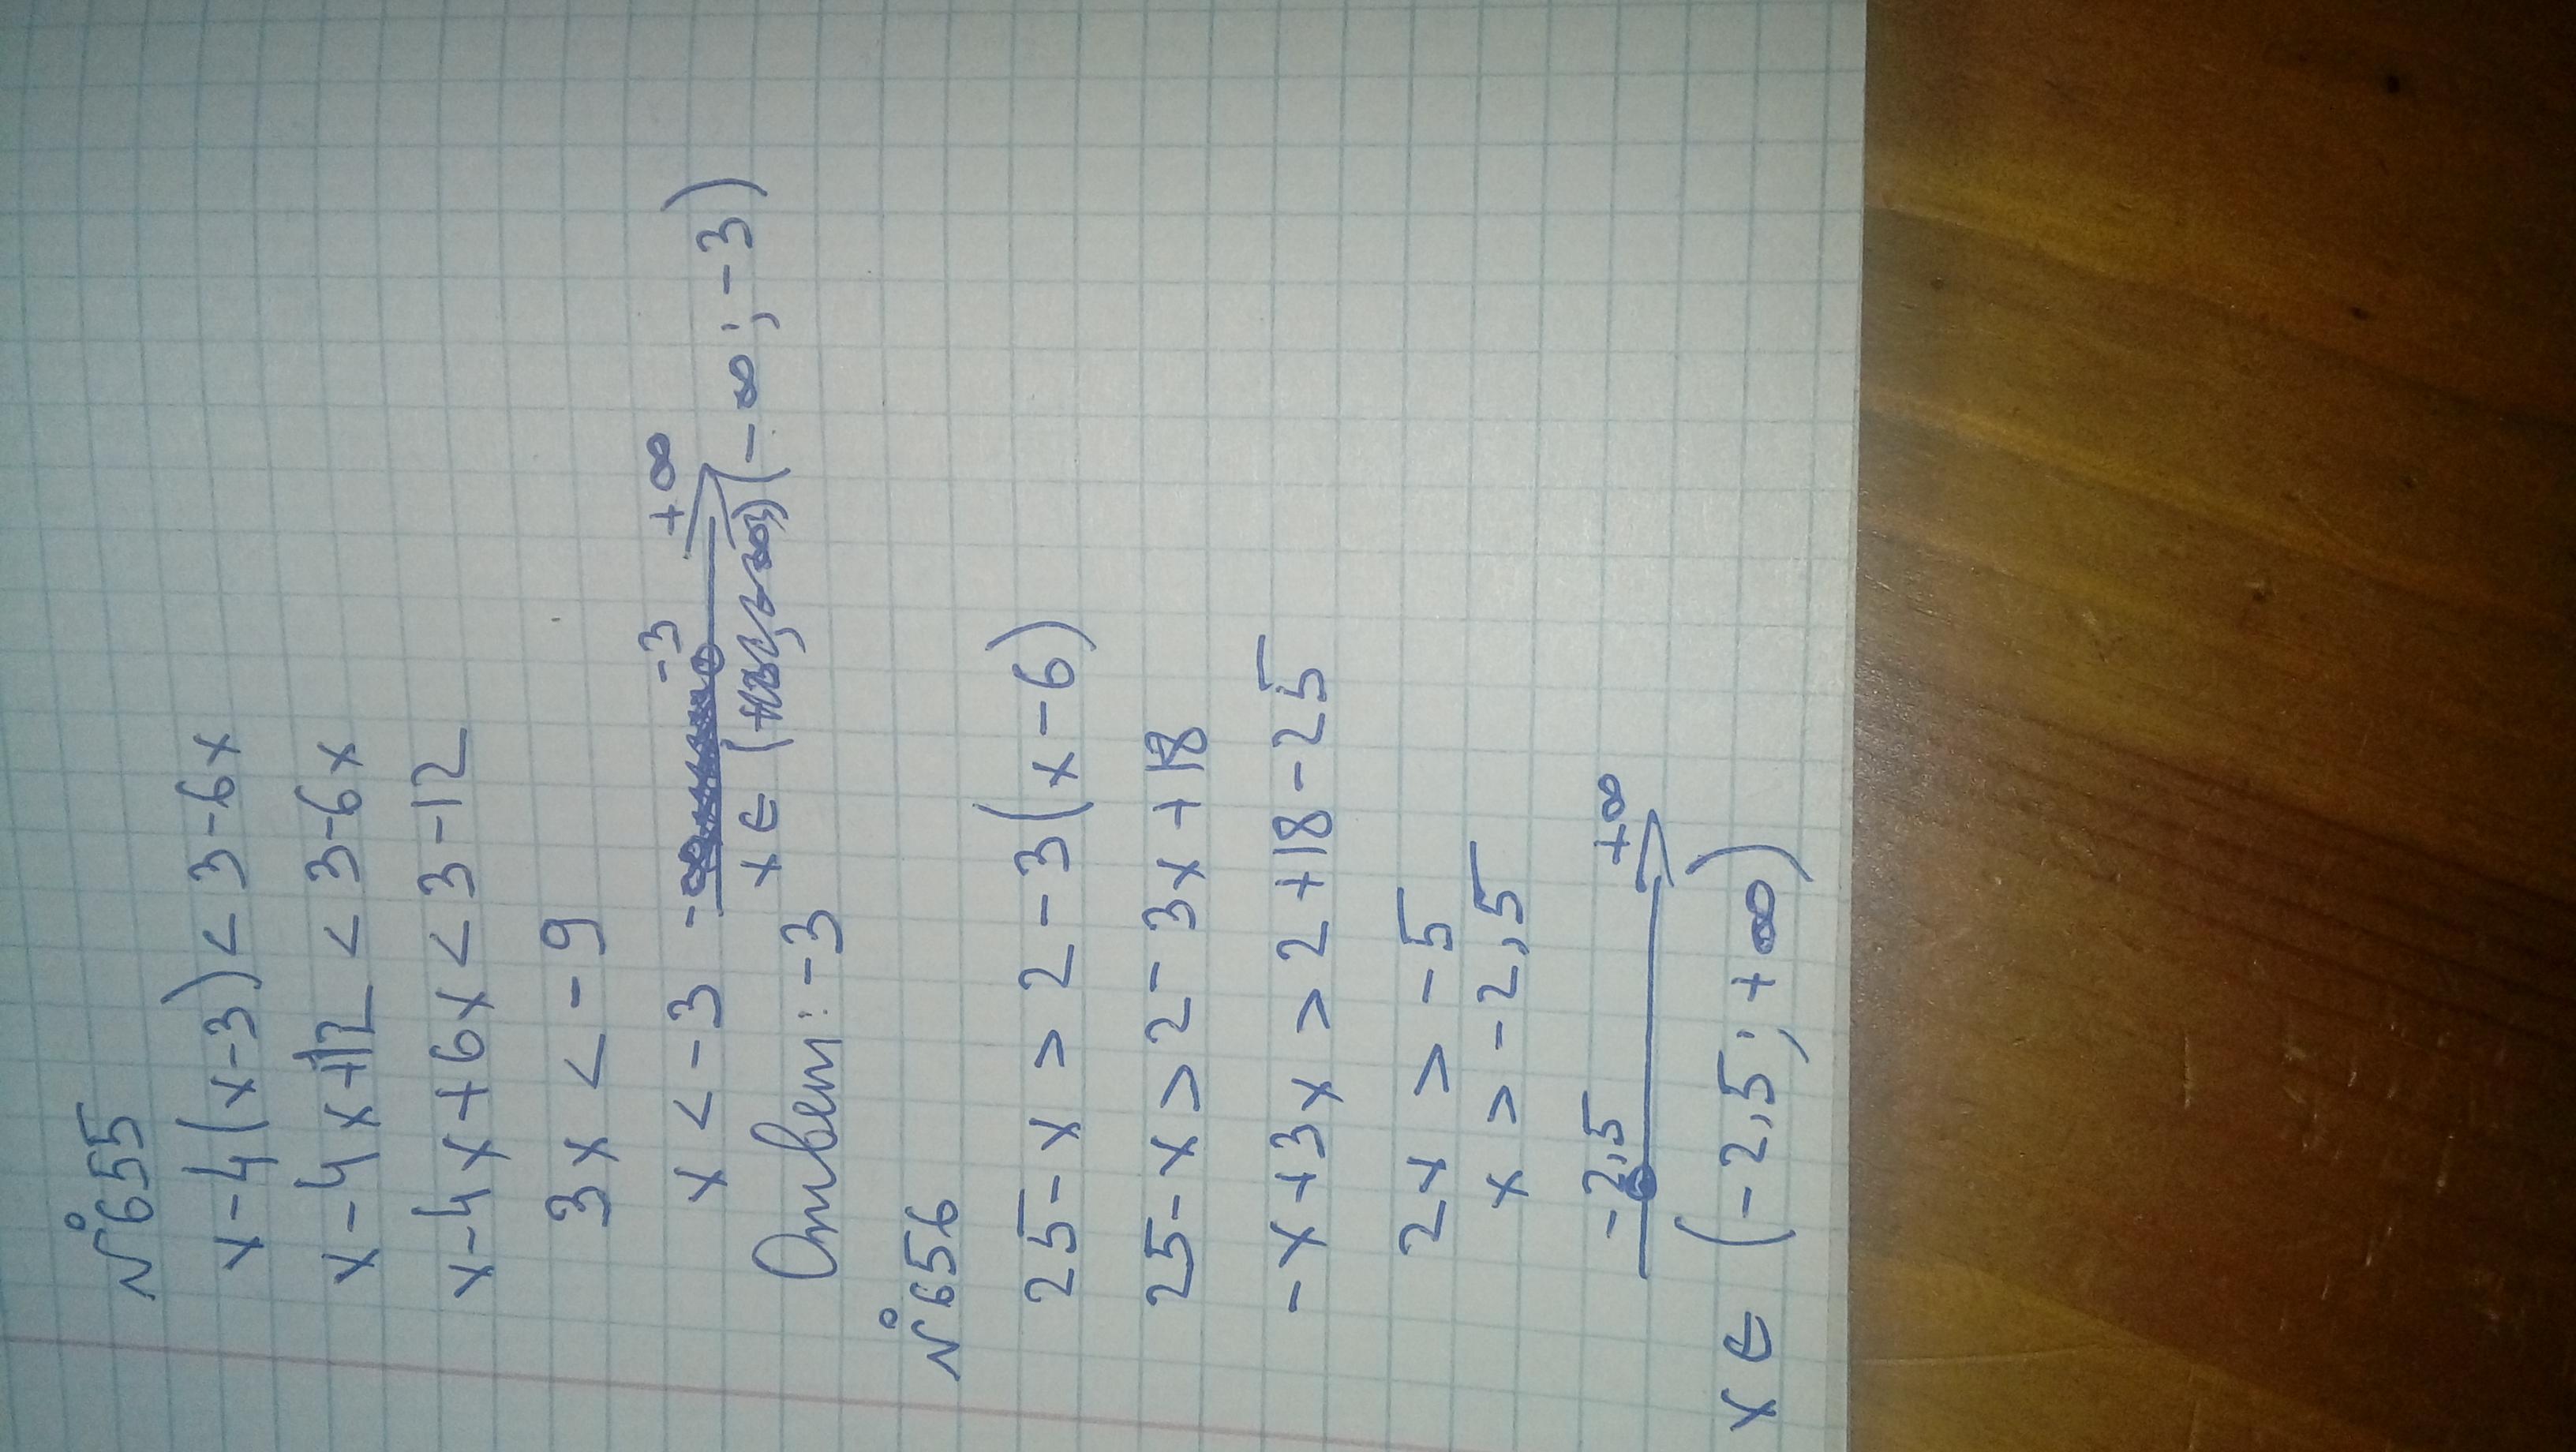 №655
x-4(x-3)<3-6x
x-4x+12<3-6x
x-4x+6x<3-12
3x<-9
x<-3 -∞ -3 +∞
x∈ (-∞;-3)
Ответ:-3
№656
25-x>2-3(x-6)
25-x>2-3x+18
-x+3x>2+18-25
2x>-5
x>-2,5
-2,5 +∞
x∈ (-2,5;+∞)